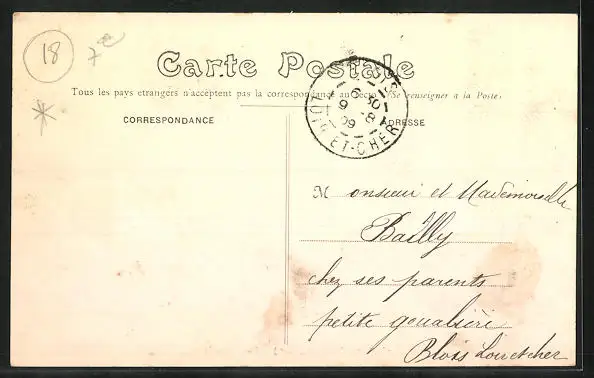 18
7e
Carte Postale
Tous les pays etrangers n'acceptent pas la correspondance au recto (Se renseigner a la Poste)
CORRESPONDANCE
ADRESSE
LOIR-ET-CHER
Monsieur et Mademoiselle
Bailly
chez ses parents
petite
Blois Loir et cher